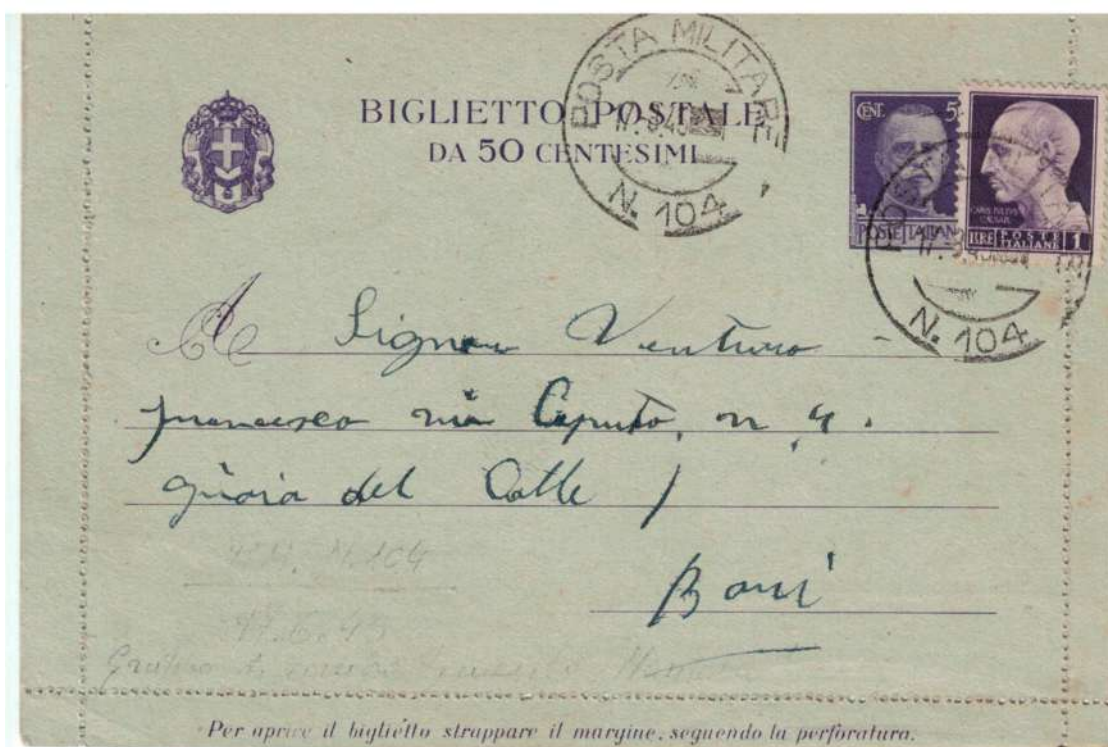 BIGLIETTO POSTALE
DA 50 CENTESIMI
POSTA MILITARE
N. 104
CENT. 50
POSTE ITALIANE
CAIVS IVLIVS
CAESAR
LIRE POSTE ITALIANE 1
POSTA MILITARE
N. 104
A Signor Venturo
francesco via Caputo, n 4.
gioia del Colle /
Bari
N. 104
Per aprire il biglietto strappare il margine, seguendo la perforatura.